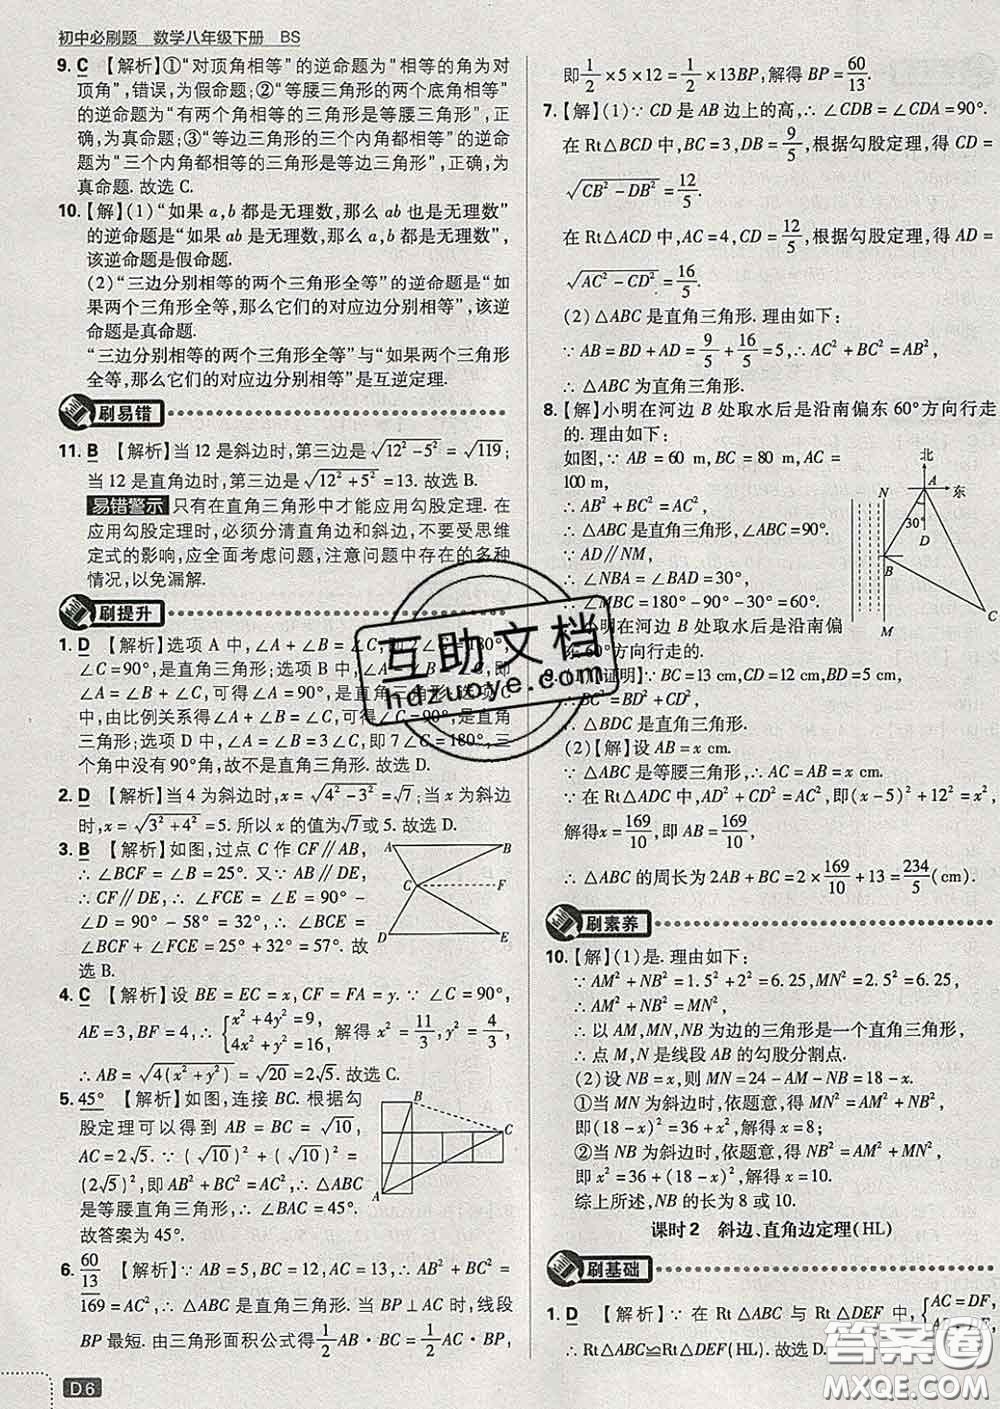 初中必刷题 数学八年级下册 BS
9. C 【解析】①“对顶角相等”的逆命题为“相等的角为对
顶角”,错误,为假命题;②“等腰三角形的两个底角相等”
的逆命题为“有两个角相等的三角形是等腰三角形”,正
确,为真命题;③“等边三角形的三个内角都相等”的逆命
题为“三个内角都相等的三角形是等边三角形”,正确,为
真命题. 故选 C.
10.【解】(1)“如果 a,b 都是无理数,那么 ab 也是无理数”
的逆命题是“如果 ab 是无理数,那么 a,b 都是无理数”,
该逆命题是假命题.
(2)“三边分别相等的两个三角形全等”的逆命题是“如
果两个三角形全等,那么它们的对应边分别相等”,该逆
命题是真命题.
“三边分别相等的两个三角形全等”与“如果两个三角形
全等,那么它们的对应边分别相等”是互逆定理.
刷易错
11. B 【解析】当 12 是斜边时,第三边是√(12²-5²)=√119;
当 12 是直角边时,第三边是√(12²+5²)=13. 故选 B.
易错警示 只有在直角三角形中才能应用勾股定理. 在
应用勾股定理时,必须分清直角边和斜边,不要受思维
定式的影响,应全面考虑问题,注意问题中存在的多种
情况,以免漏解.
刷提升
1. D 【解析】选项 A 中,∠A+∠B=∠C,
∠C=90°,是直角三角形;选项 B 中,
∠A=∠B+∠C,可得∠A=90°,是直角三角形;选项 C
中,由比例关系得∠A+∠B=∠C=90°,是直角
三角形;选项 D 中,∠A=∠B=3∠C,即 7∠C=180°,三
个角中没有90°角,故不是直角三角形. 故选 D.
2. D 【解析】当 4 为斜边时,x=√(4²-3²)=√7;当 x 为斜边
时,x=√(3²+4²)=5. 所以 x 的值为√7或 5. 故选 D.
3. B 【解析】如图,过点 C 作 CF∥AB,
∴∠BCF=∠B=25°. 又∵AB∥DE,
∴CF∥DE,∴∠FCE=∠E=90°-
∠D=90°-58°=32°,∴∠BCE=
∠BCF+∠FCE=25°+32°=57°. 故
选 B.
A B C F D E
4. C 【解析】设 BE=EC=x,CF=FA=y. ∵∠C=90°,
AE=3,BF=4,∴{x²+4y²=9, 4x²+y²=16, 解得 x²=11/3,y²=4/3,
∴AB=√(4(x²+y²))=√20=2√5. 故选 C.
5. 45° 【解析】如图,连接 BC. 根据勾
股定理可以得到 AB=BC=√10,
AC=2√5. ∵(√10)²+(√10)²=
(2√5)²,即 AB²+BC²=AC²,∴△ABC
是等腰直角三角形,∴∠BAC=45°.
故答案为 45°.
B C A
6. 60/13 【解析】∵AB=5,BC=12,AC=13,∴AB²+BC²=
169=AC²,∴△ABC 是直角三角形. 当 BP⊥AC 时,线段
BP 最短. 由三角形面积公式得1/2AB·BC=1/2AC·BP,
D6
即1/2×5×12=1/2×13BP,解得 BP=60/13.
7.【解】(1)∵CD 是 AB 边上的高,∴∠CDB=∠CDA=90°.
在 Rt△BCD 中,BC=3,DB=9/5,根据勾股定理,得 CD=
√(CB²-DB²)=12/5.
在 Rt△ACD 中,AC=4,CD=12/5,根据勾股定理,得 AD=
√(AC²-CD²)=16/5.
(2)△ABC 是直角三角形. 理由如下:
∵AB=BD+AD=9/5+16/5=5,∴AC²+BC²=AB²,
∴△ABC 为直角三角形.
8.【解】小明在河边 B 处取水后是沿南偏东 60°方向行走
的. 理由如下:
如图,∵AB=60 m,BC=80 m,AC=
100 m,
∴AB²+BC²=AC²,
∴△ABC 是直角三角形,∠ABC=90°.
∵AD∥NM,
∴∠NBA=∠BAD=30°,
∴∠MBC=180°-90°-30°=60°,
∴小明在河边 B 处取水后是沿南偏
东 60°方向行走的.
北 A 东 N 30° D B M C
9. 【证明】∵BC=13 cm,CD=12 cm,BD=5 cm,
∴BC²=BD²+CD²,
∴△BDC 是直角三角形.
(2)【解】设 AB=x cm.
∵△ABC 是等腰三角形,∴AB=AC=x cm.
∵在 Rt△ADC 中,AD²+CD²=AC²,即(x-5)²+12²=x²,
解得x=169/10,即 AB=169/10,
∴△ABC 的周长为 2AB+BC=2×169/10+13=234/5(cm).
刷素养
10.【解】(1)是. 理由如下:
∵AM²+NB²=1.5²+2²=6.25,MN²=2.5²=6.25,
∴AM²+NB²=MN²,
∴以 AM,MN,NB 为边的三角形是一个直角三角形,
∴点 M,N 是线段 AB 的勾股分割点.
(2)设 NB=x,则 MN=24-AM-NB=18-x.
①当 MN 为斜边时,依题意,得 MN²=AM²+NB²,
即(18-x)²=36+x²,解得 x=8;
②当 NB 为斜边时,依题意,得 NB²=AM²+MN²,
即 x²=36+(18-x)²,解得 x=10.
综上所述,NB 的长为 8 或 10.
课时 2 斜边、直角边定理(HL)
刷基础
1. D 【解析】∵在 Rt△ABC 与 Rt△DEF 中,{AC=DF,
∴Rt△ABC≌Rt△DEF(HL). 故选 D.
互助文档
hdzuoye.com
答案圈
MXQE.COM